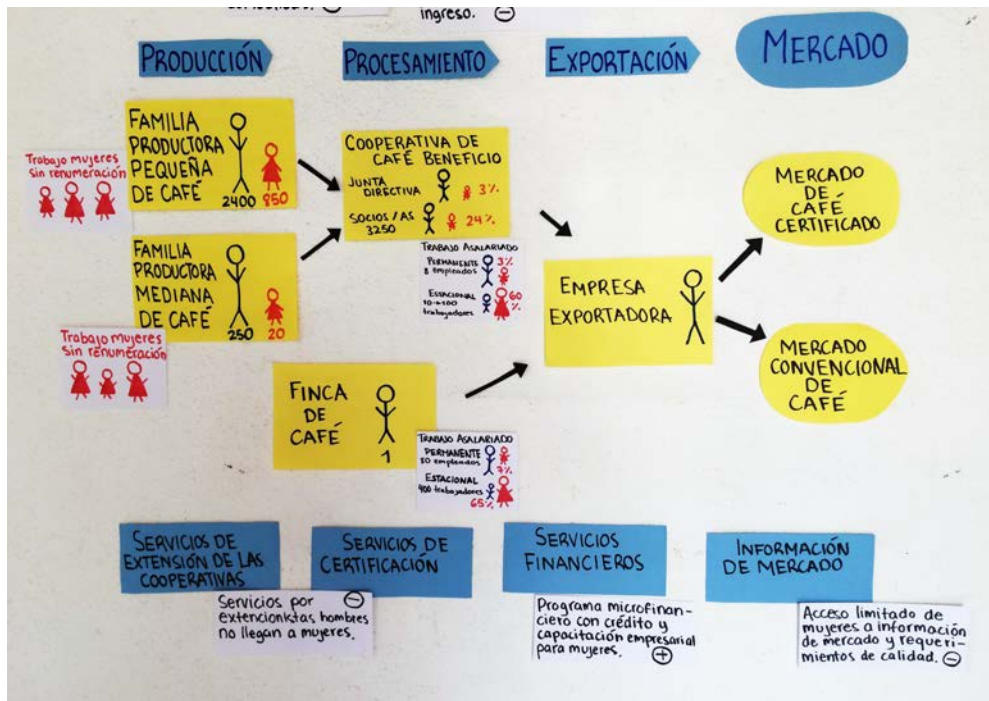 ingreso. ⊖
PRODUCCIÓN
PROCESAMIENTO
EXPORTACIÓN
MERCADO
FAMILIA
PRODUCTORA
PEQUEÑA
DE CAFÉ
2400 850
Trabajo mujeres
sin renumeración
FAMILIA
PRODUCTORA
MEDIANA
DE CAFÉ
250 20
Trabajo mujeres
sin renumeración
COOPERATIVA DE
CAFÉ BENEFICIO
JUNTA
DIRECTIVA 3%
SOCIOS/AS 24%
3250
TRABAJO ASALARIADO
PERMANENTE 3%
8 empleados
ESTACIONAL 60
10→100 %
trabajadores
FINCA
DE
CAFÉ
1
TRABAJO ASALARIADO
PERMANENTE
50 empleados
7%
ESTACIONAL
400 trabajadores
65%
EMPRESA
EXPORTADORA
MERCADO
DE
CAFÉ
CERTIFICADO
MERCADO
CONVENCIONAL
DE
CAFÉ
SERVICIOS DE
EXTENSIÓN DE LAS
COOPERATIVAS
Servicios por ⊖
extencionistas hombres
no llegan a mujeres.
SERVICIOS DE
CERTIFICACIÓN
SERVICIOS
FINANCIEROS
Programa microfinan-
ciero con crédito y
capacitación empresarial
para mujeres. ⊕
INFORMACIÓN
DE MERCADO
Acceso limitado de
mujeres a información
de mercado y requeri-
mientos de calidad. ⊖